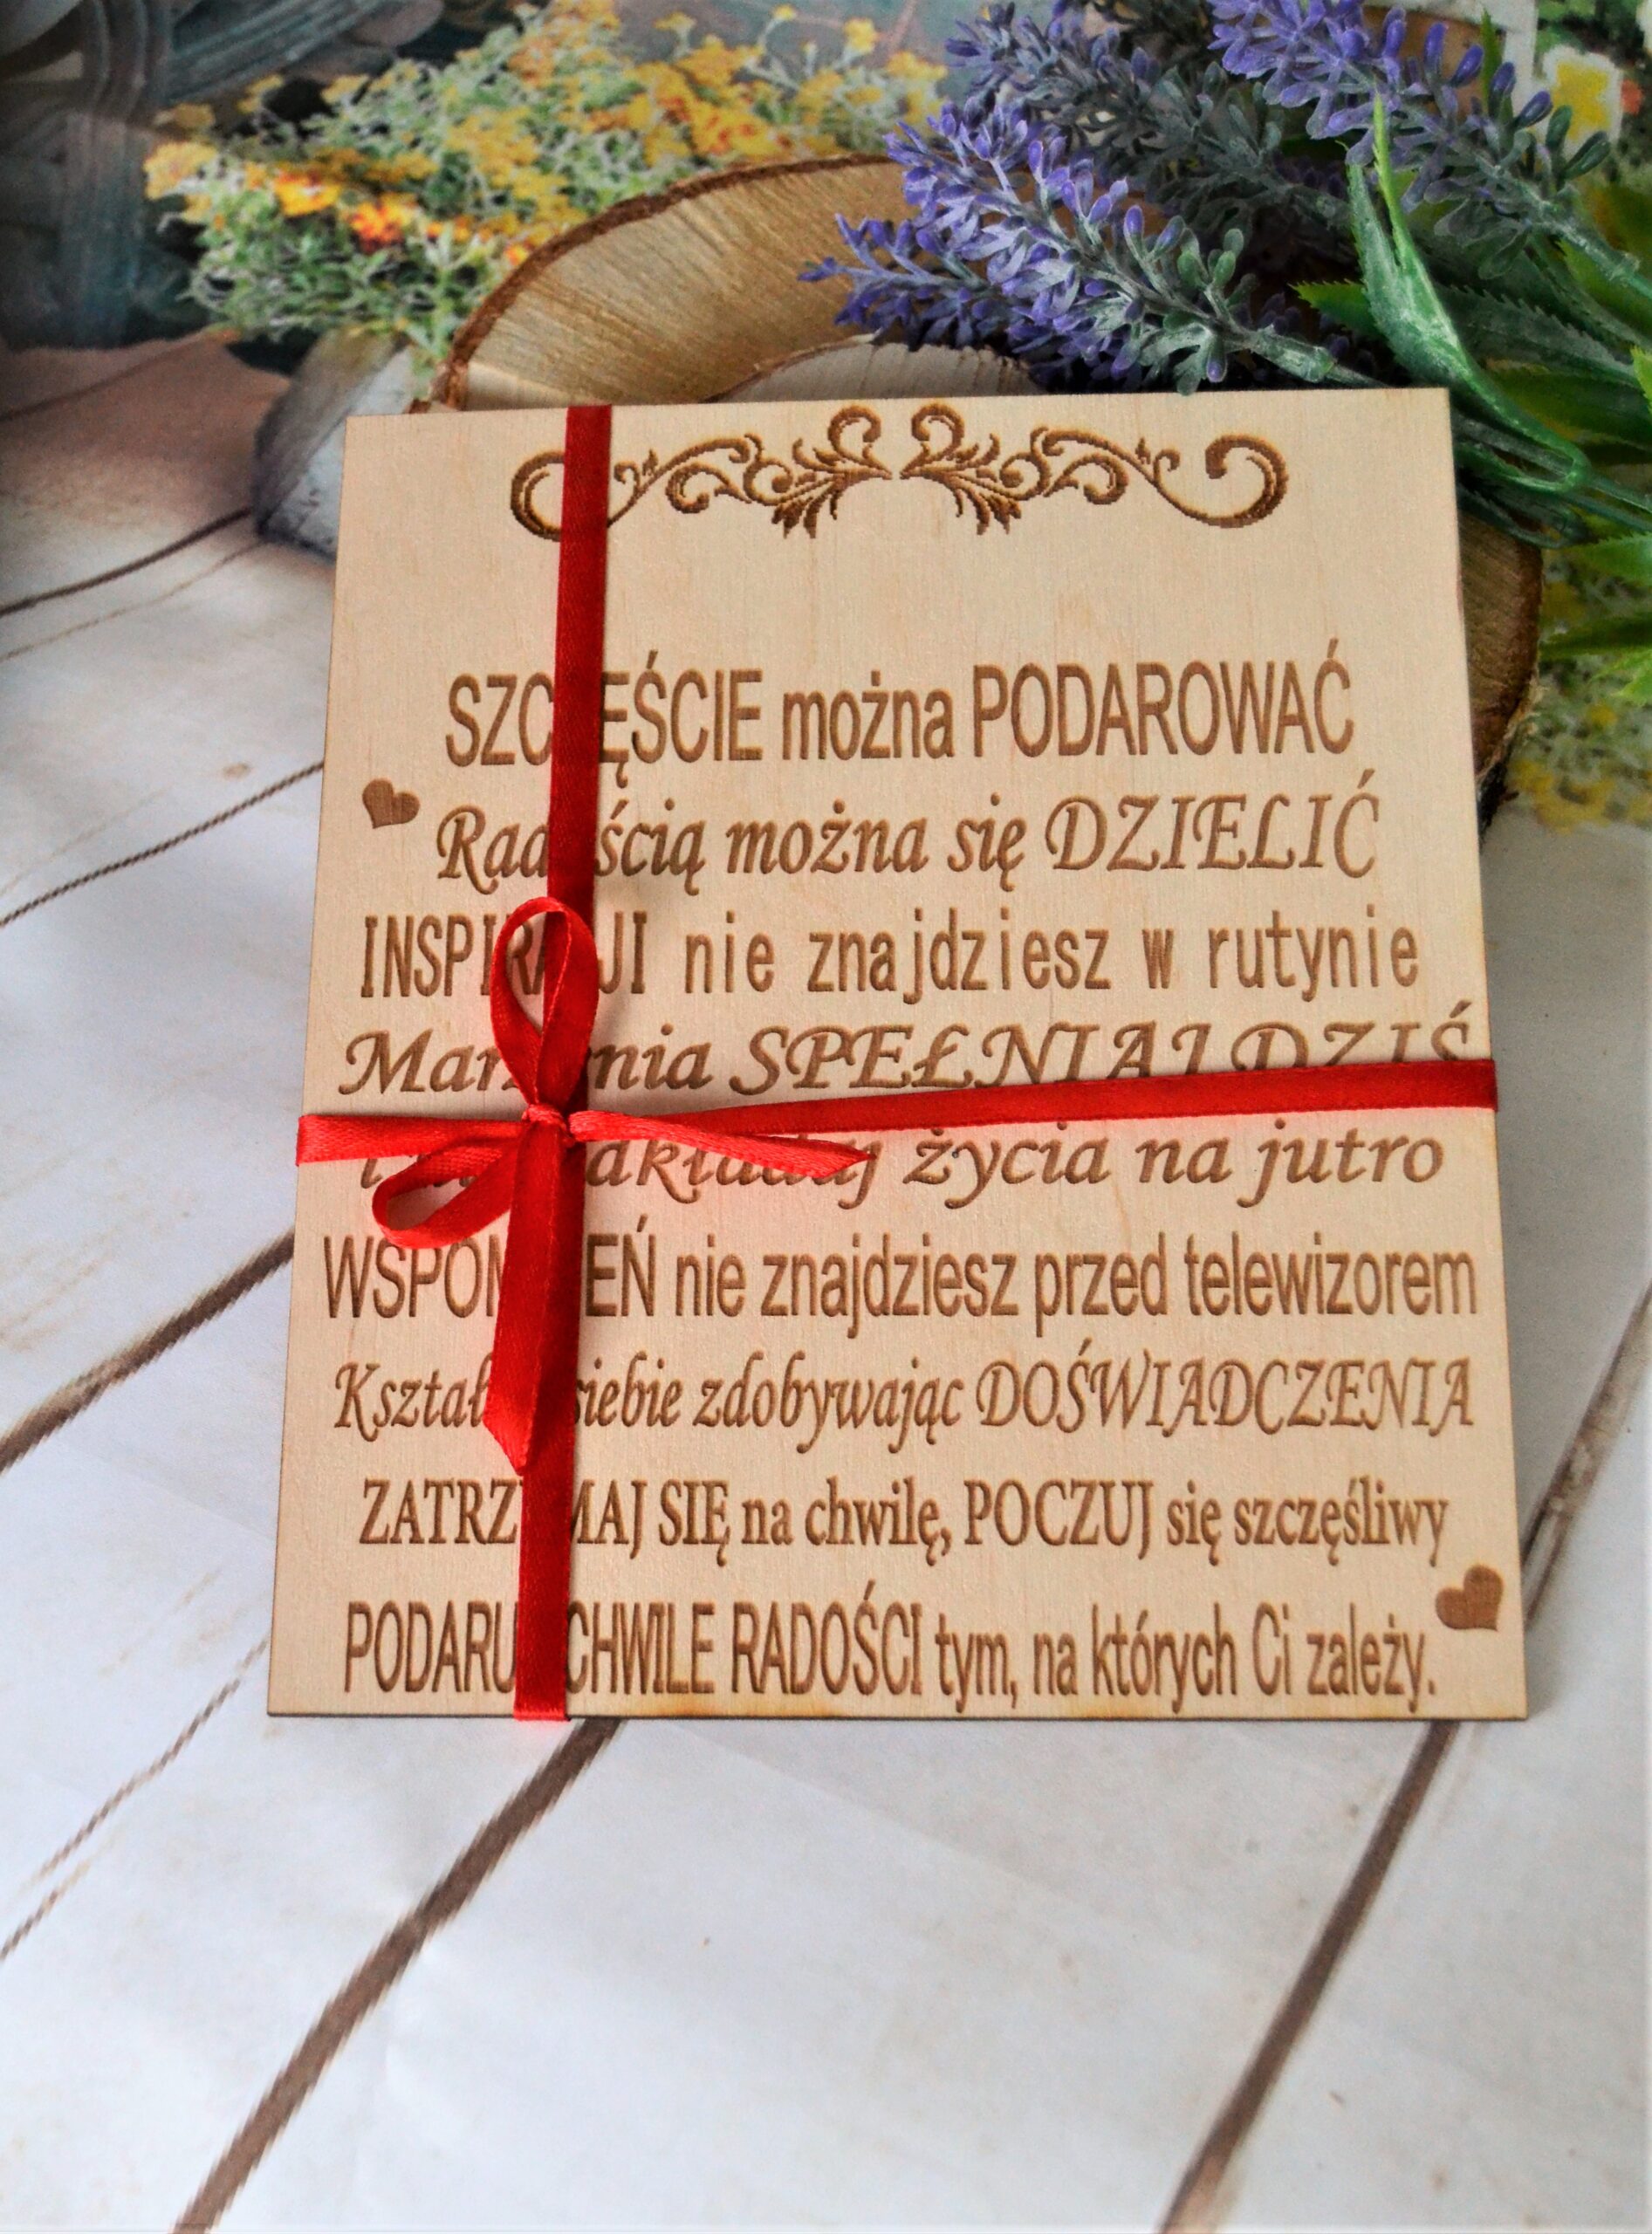 SZCZĘŚCIE można PODAROWAĆ
Radością można się DZIELIĆ
INSPIRACJI nie znajdziesz w rutynie
Marzenia SPEŁNIAJ DZIŚ
i nie zakładaj życia na jutro
WSPOMNIEŃ nie znajdziesz przed telewizorem
Kształ siebie zdobywając DOŚWIADCZENIA
ZATRZYMAJ SIĘ na chwilę, POCZUJ się szczęśliwy
PODARUJ CHWILE RADOŚCI tym, na których Ci zależy.